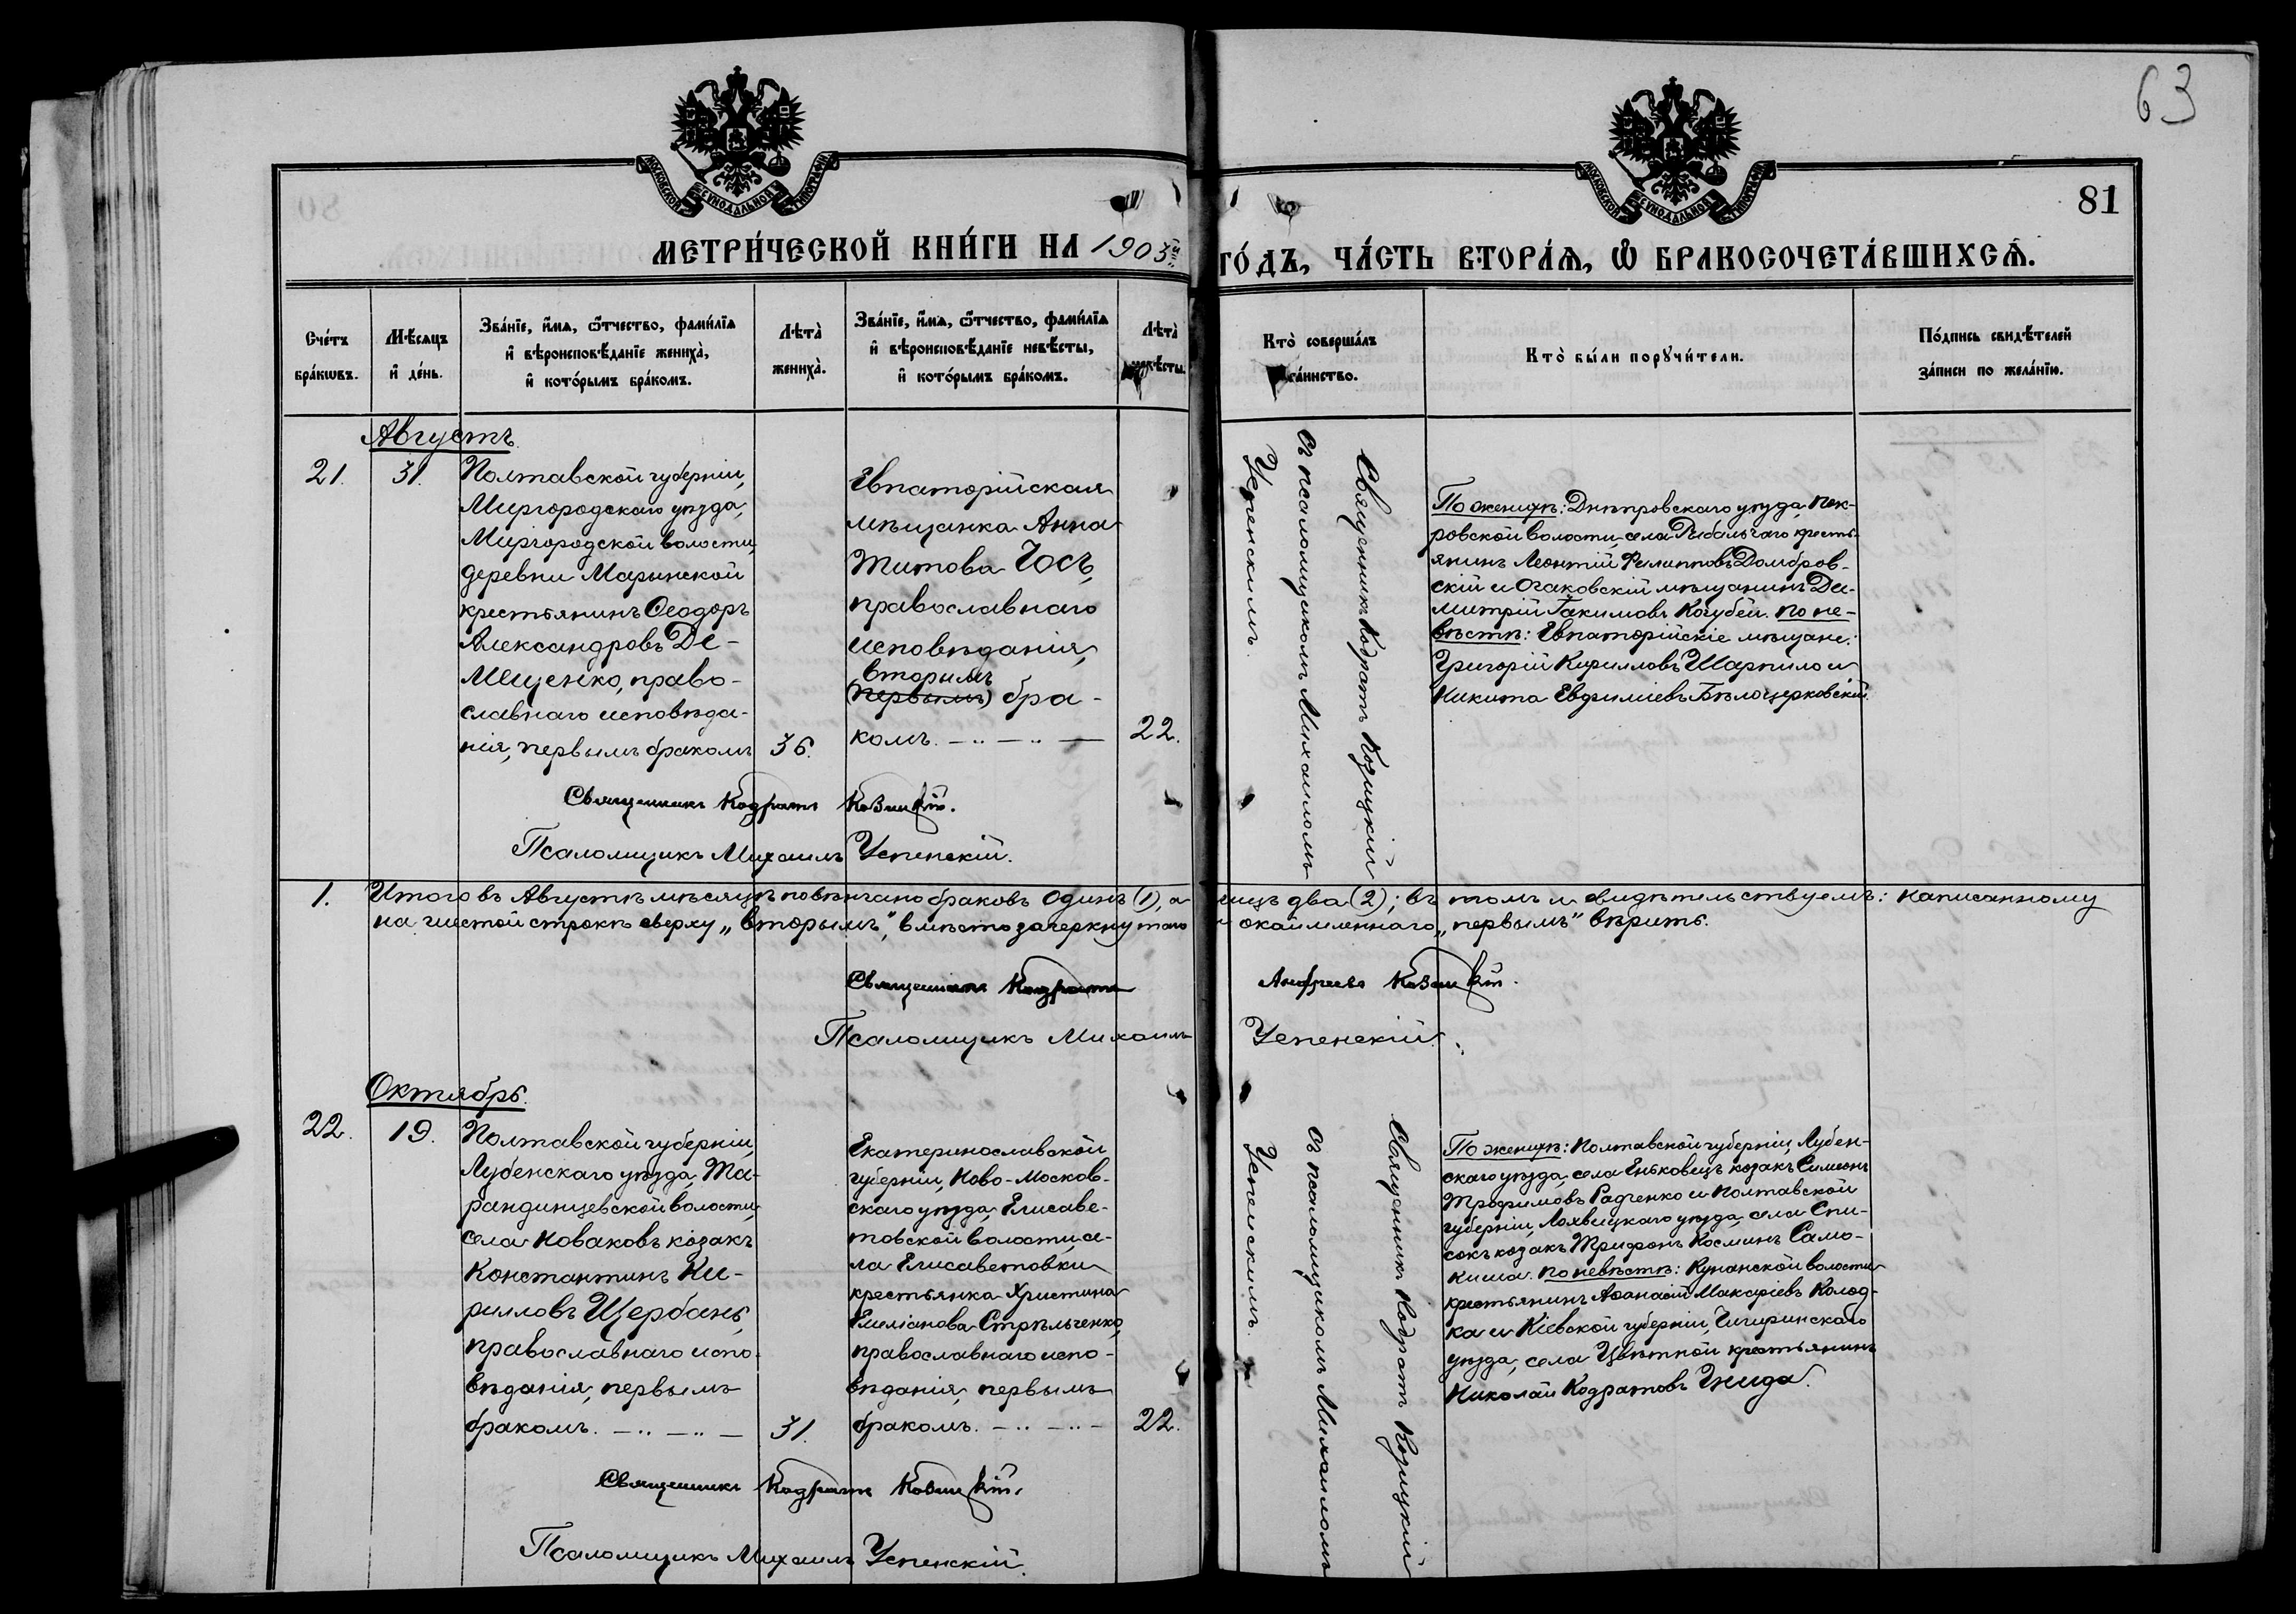 63
МОСКОВСКОЙ СѴНОДАЛЬНОЙ ТИПОГРАФІИ
МОСКОВСКОЙ СѴНОДАЛЬНОЙ ТИПОГРАФІИ
81
МЕТРИ́ЧЕСКОЙ КНИ́ГИ НА 1903й
ГО́ДЪ, ЧА́СТЬ ВТОРА́Ѧ, Ѽ БРАКОСОЧЕТА́ВШИХСѦ.
Сче́тъ бра́кѡвъ.
Мѣ́сѧцъ и҆ де́нь.
Зва́нїе, и҆́мѧ, ѻ҆́тчество, фами́лїѧ
и҆ вѣроисповѣ́данїе жениха̀,
и҆ кото́рымъ бра́комъ.
Лѣта̀ жениха̀.
Зва́нїе, и҆́мѧ, ѻ҆́тчество, фами́лїѧ
и҆ вѣроисповѣ́данїе невѣ́сты,
и҆ кото́рымъ бра́комъ.
Лѣта̀ невѣ́сты.
Кто̀ соверша́лъ
та́инство.
Кто̀ бы́ли порꙋчи́тели.
По́дпись свидѣ́телей
за́писи по жела́нїю.
Августъ.
21.
31.
Полтавской губерніи,
Миргородскаго уѣзда,
Миргородской волости,
деревни Марьинской
крестьянинъ Ѳеодоръ
Александровъ Де-
мещенко, право-
славнаго исповѣда-
нія, первымъ бракомъ
36.
Евпаторійская
мѣщанка Анна
Титова Юсъ,
православнаго
исповѣданія,
вторымъ
(первымъ) бра-
комъ. — .. — .. —
22.
Священникъ Кодратъ Козицкій
съ псаломщикомъ Михаиломъ
Успенскимъ.
По женихѣ: Днѣпровскаго уѣзда, Пок-
ровской волости, села Рыбальчаго кресть-
янинъ Леонтій Филипповъ Домбров-
скій и Очаковскій мѣщанинъ Ди-
митрій Іакимовъ Кочубей. По не-
вѣстѣ: Евпаторійскіе мѣщане:
Григорій Кирилловъ Шарпило и
Никита Евфиміевъ Бѣлоцерковскій.
Священникъ Кодратъ Козицкій.
Псаломщикъ Михаилъ Успенскій.
1. Итого въ Августѣ мѣсяцѣ повѣнчано браковъ одинъ (1), а лицъ два (2); въ томъ и свидѣтельствуемъ: написанному
на шестой строкѣ сверху „вторымъ", вмѣсто зачеркнутаго и окаймленнаго „первымъ" вѣрить.
Священникъ Кодратъ Андреевъ Козицкій.
Псаломщикъ Михаилъ Успенскій.
Октябрь.
22.
19.
Полтавской губерніи,
Лубенскаго уѣзда, Та-
рандинцевской волости,
села Новаковъ козакъ
Константинъ Ки-
рилловъ Щербань,
православнаго испо-
вѣданія, первымъ
бракомъ. — .. — .. —
31.
Екатеринославской
губерніи, Ново-Москов-
скаго уѣзда, Елисаве-
товской волости, се-
ла Елисаветовки
крестьянка Христина
Емиліанова Стрѣльченко,
православнаго испо-
вѣданія, первымъ
бракомъ. — .. — .. —
22.
Священникъ Кодратъ Козицкій
съ псаломщикомъ Михаиломъ
Успенскимъ.
По женихѣ: Полтавской губерніи, Лубен-
скаго уѣзда, села Еньковецъ козакъ Симеонъ
Трофимовъ Радченко и Полтавской
губерніи, Лохвицкаго уѣзда, села Спи-
сокъ козакъ Трифонъ Косминъ Само-
киша. По невѣстѣ: Кунанской волости
крестьянинъ Аѳанасій Макаріевъ Колод-
ка и Кіевской губерніи, Чигиринскаго
уѣзда, села Цвѣтной крестьянинъ
Николай Кодратовъ Гнида.
Священникъ Кодратъ Козицкій.
Псаломщикъ Михаилъ Успенскій.